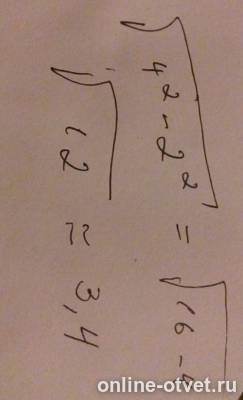 √4² - 2² = √16 - 4
√12 ≈ 3,4
online-otvet.ru